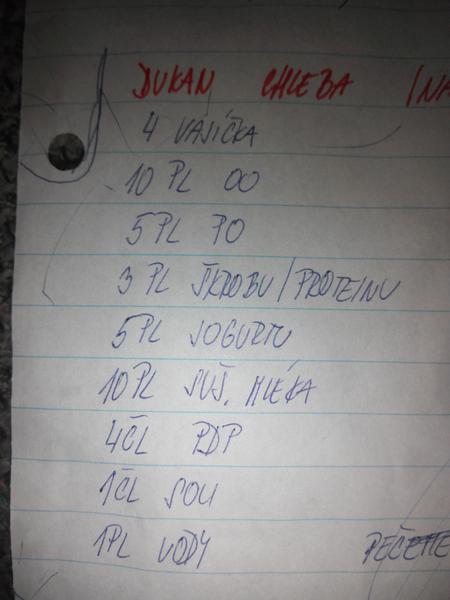 DUKAN CHLEBA /NA
4 VAJÍČKA
10 PL OO
5 PL PO
3 PL ŠKROBU/PROTEINU
5 PL JOGURTU
10 PL SUŠ. MLÉKA
4 ČL PDP
1 ČL SOLI
1 PL VODY PEČEME